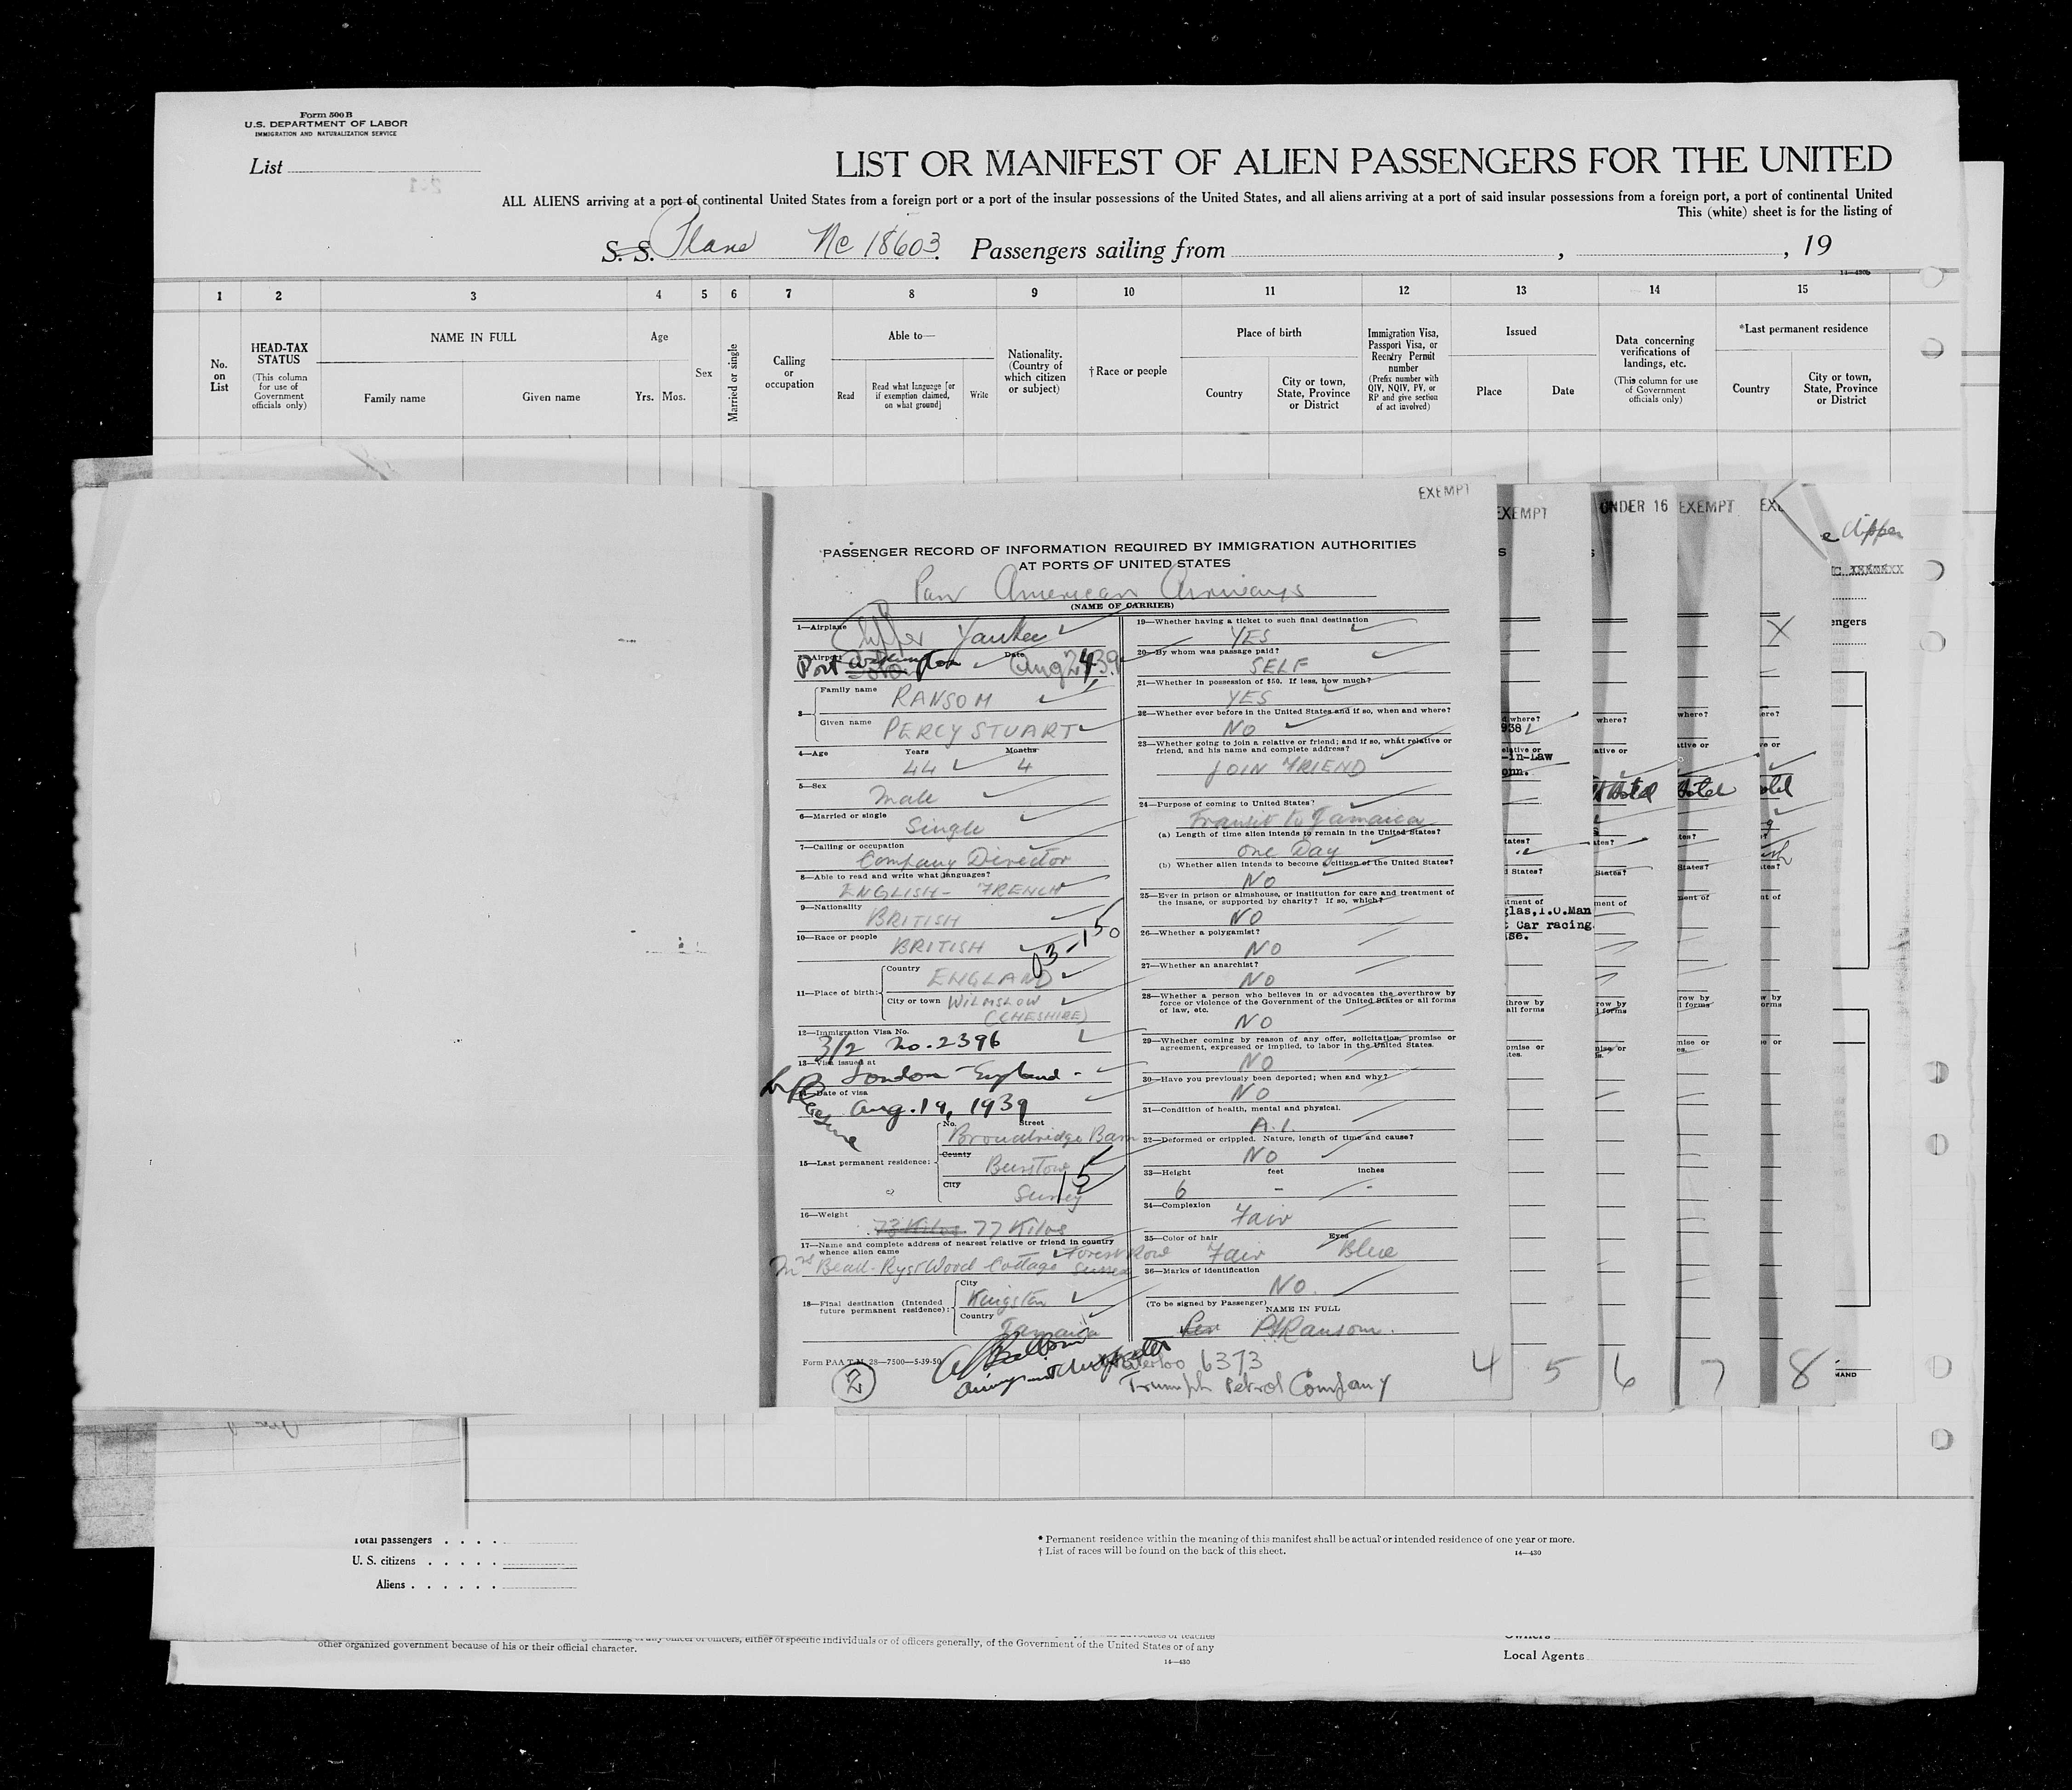 Form 500 B
U.S. DEPARTMENT OF LABOR
IMMIGRATION AND NATURALIZATION SERVICE
List
LIST OR MANIFEST OF ALIEN PASSENGERS FOR THE UNITED
ALL ALIENS arriving at a port of continental United States from a foreign port or a port of the insular possessions of the United States, and all aliens arriving at a port of said insular possessions from a foreign port, a port of continental United
This (white) sheet is for the listing of
S. S. Plane Nc 18603. Passengers sailing from , , 19
14—430b
1 2 3 4 5 6 7 8 9 10 11 12 13 14 15
No. on List
HEAD-TAX STATUS (This column for use of Government officials only)
NAME IN FULL
Family name
Given name
Age
Yrs. Mos.
Sex
Married or single
Calling or occupation
Able to—
Read
Read what language [or if exemption claimed, on what ground]
Write
Nationality. (Country of which citizen or subject)
†Race or people
Place of birth
Country
City or town, State, Province or District
Immigration Visa, Passport Visa, or Reentry Permit number (Prefix number with QIV, NQIV, PV, or RP and give section of act involved)
Issued
Place
Date
Data concerning verifications of landings, etc. (This column for use of Government officials only)
*Last permanent residence
Country
City or town, State, Province or District
EXEMPT
EXEMPT
UNDER 16
EXEMPT
EX
e Clipper
PASSENGER RECORD OF INFORMATION REQUIRED BY IMMIGRATION AUTHORITIES
AT PORTS OF UNITED STATES
Pan American Airways
(NAME OF CARRIER)
1—Airplane Clipper Yankee
2—Airport Port Washington Date Aug 24 39
3— Family name RANSOM
Given name PERCY STUART
4—Age Years 44 Months 4
5—Sex Male
6—Married or single Single
7—Calling or occupation Company Director
8—Able to read and write what languages?
ENGLISH - FRENCH
9—Nationality BRITISH
10—Race or people BRITISH
03-150
11—Place of birth: Country ENGLAND
City or town WILMSLOW
(CHESHIRE)
12—Immigration Visa No.
3/2 No. 2396
13—Visa issued at
London England -
14—Date of visa
Aug. 19, 1939
15—Last permanent residence: No. Street Broadbridge Barn
County Burstow
City Surrey
15
16—Weight 73 Kilos 77 Kilos
17—Name and complete address of nearest relative or friend in country
whence alien came Forest Row
Cottage Sussex
18—Final destination (Intended future permanent residence): City Kingston
Country Jamaica
Form PAA T.M. 28—7500—5-39-50
2
19—Whether having a ticket to such final destination
YES
20—By whom was passage paid?
SELF
21—Whether in possession of $50. If less, how much?
YES
22—Whether ever before in the United States and if so, when and where?
NO
23—Whether going to join a relative or friend; and if so, what relative or
friend, and his name and complete address?
JOIN FRIEND
24—Purpose of coming to United States?
Transit to Jamaica
(a) Length of time alien intends to remain in the United States?
One Day
(b) Whether alien intends to become a citizen of the United States?
NO
25—Ever in prison or almshouse, or institution for care and treatment of
the insane, or supported by charity? If so, which?
NO
26—Whether a polygamist?
NO
27—Whether an anarchist?
NO
28—Whether a person who believes in or advocates the overthrow by
force or violence of the Government of the United States or all forms
of law, etc.
NO
29—Whether coming by reason of any offer, solicitation, promise or
agreement, expressed or implied, to labor in the United States.
NO
30—Have you previously been deported; when and why?
NO
31—Condition of health, mental and physical.
A.1.
32—Deformed or crippled. Nature, length of time and cause?
NO
33—Height feet inches
6 - -
34—Complexion
Fair
35—Color of hair Fair Eyes Blue
36—Marks of identification
NO.
(To be signed by Passenger) NAME IN FULL
PSRansom.
Waterloo 6373
Triumph Petrol Company
4 5 6 7 8
engers
where?
938
-in-Law
onn.
Hotel
glas, I.O.Man
Car racing
Total passengers . . . .
U. S. citizens . . . . .
Aliens . . . . . .
* Permanent residence within the meaning of this manifest shall be actual or intended residence of one year or more.
† List of races will be found on the back of this sheet.
14—430
other organized government because of his or their official character.
officers, either of specific individuals or of officers generally, of the Government of the United States or of any
14—430
Owners
Local Agents